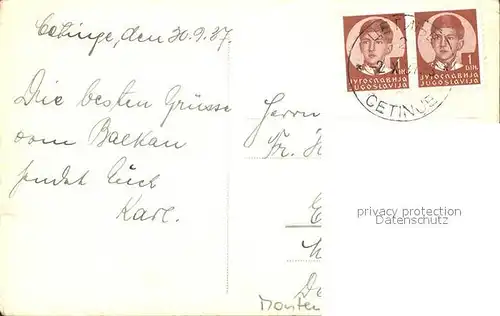 Cetinje, den 30.9.37.
Die besten Grüsse
vom Balkan
sendet Euch
Karl.
Herrn
Fr.
Monten
1 ДИН.
ЈУГОСЛАВИЈА
JUGOSLAVIJA
1 ДИН.
ЈУГОСЛАВИЈА
JUGOSLAVIJA
CETINJE
privacy protection
Datenschutz